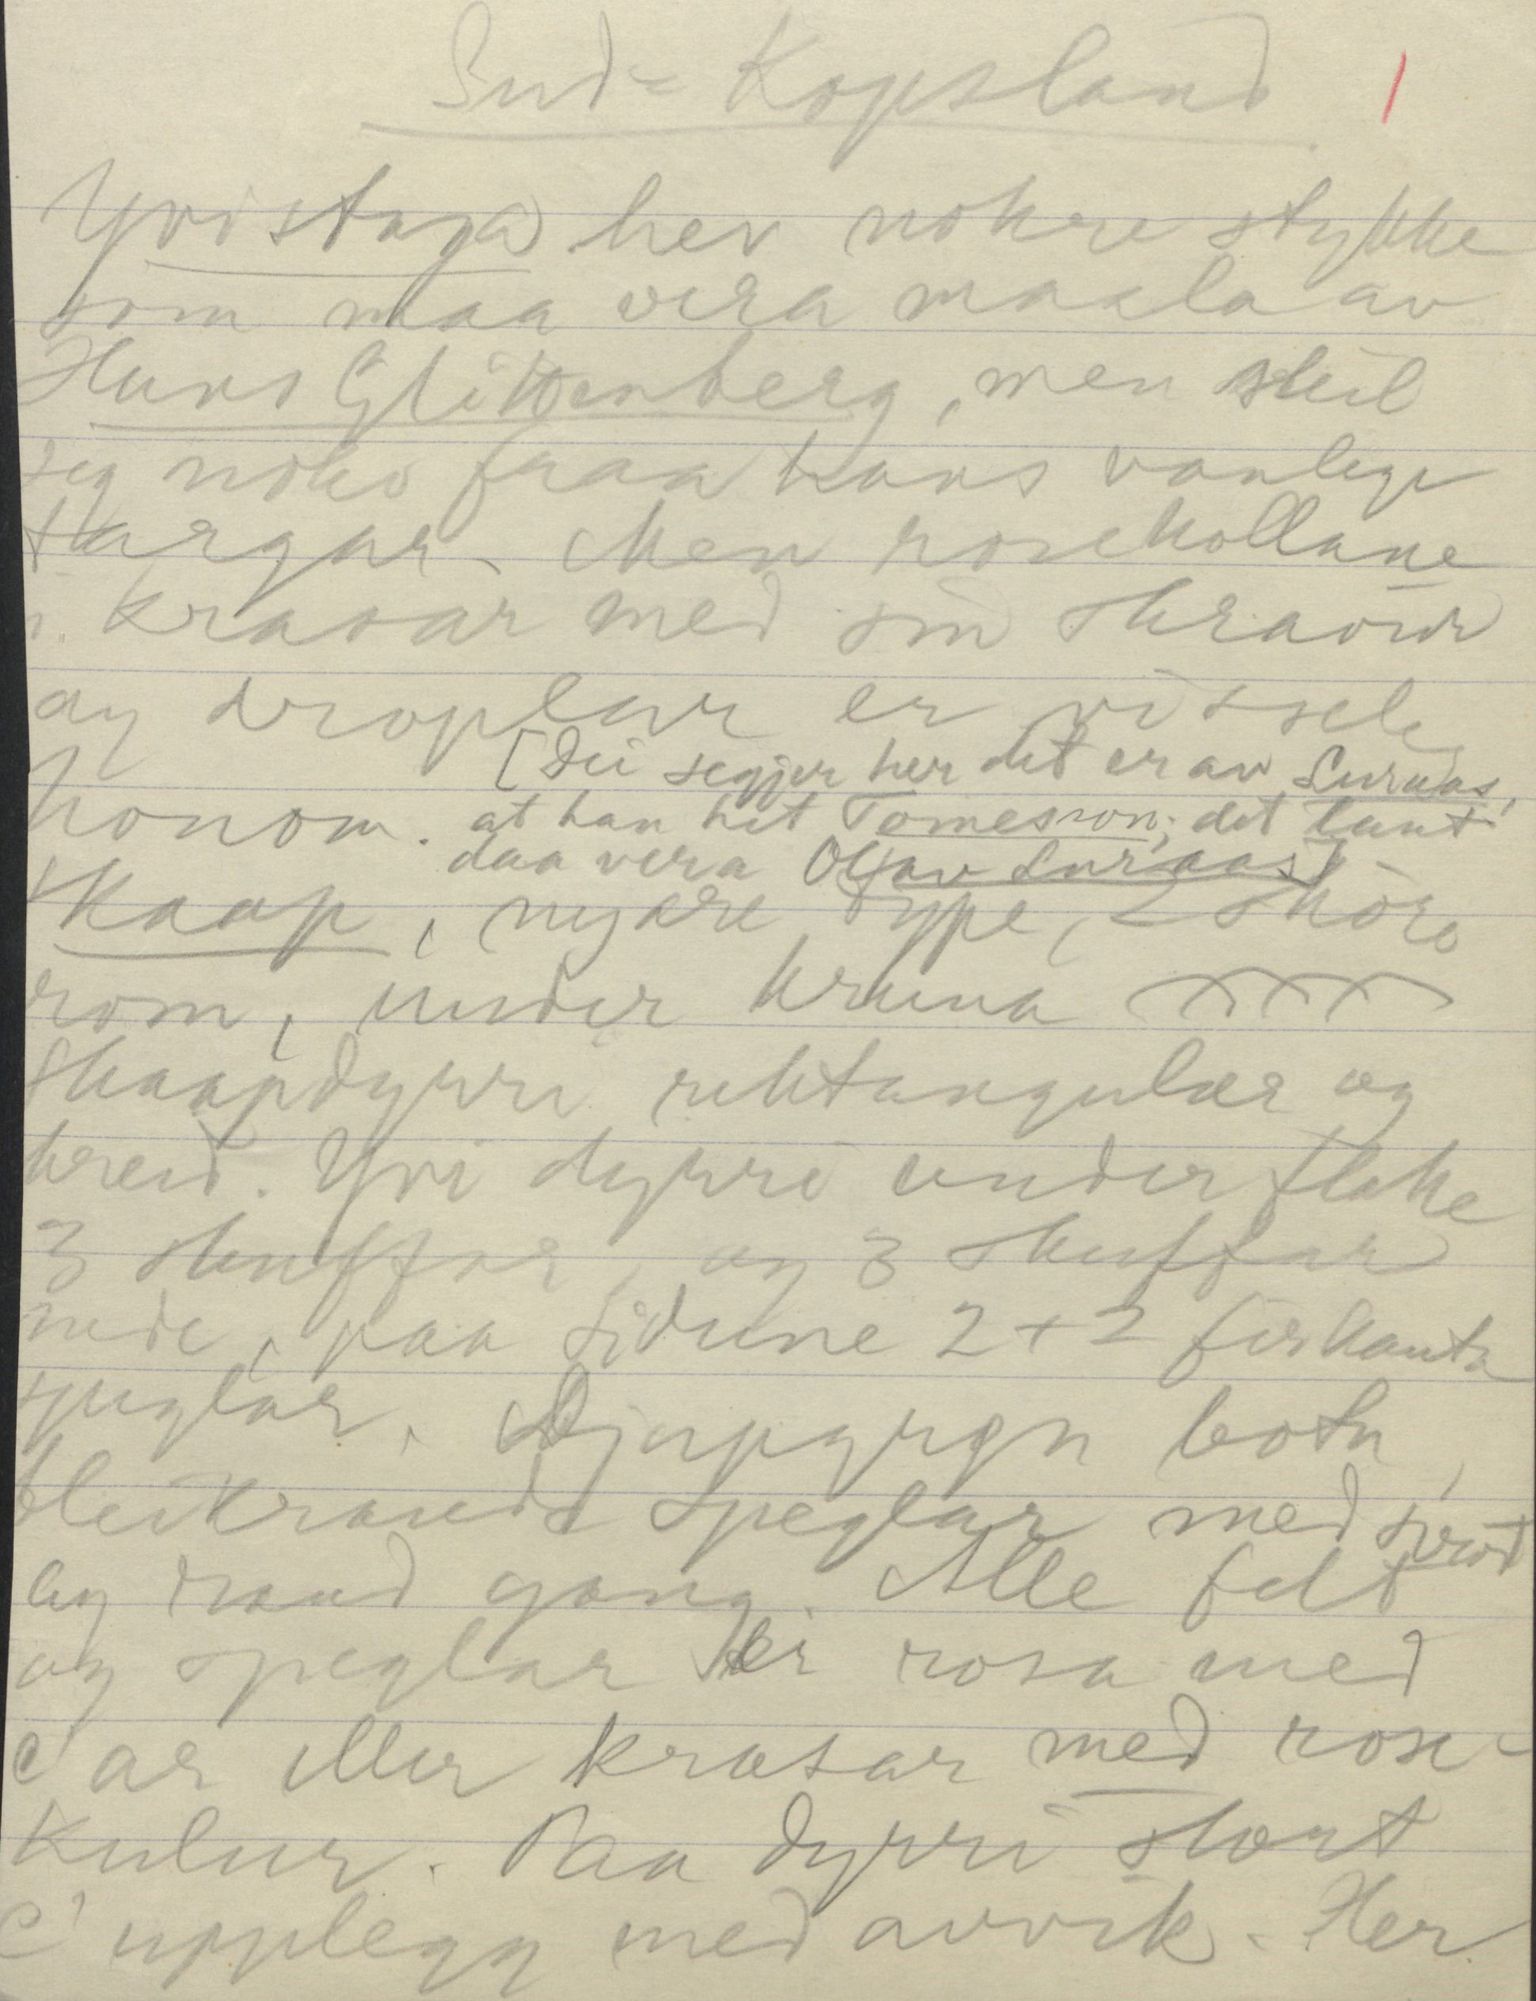 Sud-Kopsland 1
Yvistaga hev nokre stykke
som maa vera maala av
Hans Glittenberg, men skil
seg noko fraa hans vanlege
fargar. Men rosekollane
i krasar med sin skravur
og droplar er visseleg
honom. [Dei segjer her det er av Luraas,
at han het Tomesson; det laut
daa vera Olav Luraas]
Skaap, nyare type, 2 skōre
rom, under kruna
Skaapdyrri rektangulær og
breid. Yvi dyrri under flake
3 skuffor, og 3 skuffar
nede, paa sidune 2+2 firkanta
speglar. Djupgrøn botn,
bleikraude speglar med svart
og raud gang. Alle felt
og speglar er rosa med
C'ar eller krasar med rose-
kulur. Paa dyrri stort
C' upplegg med avvik. Her